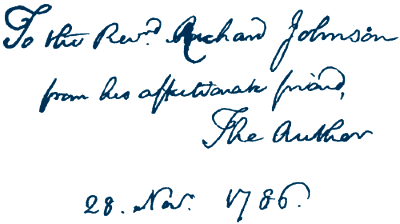 To the Revrd Richard Johnson
from his affectionate friend,
The Author
28. Novr. 1786.